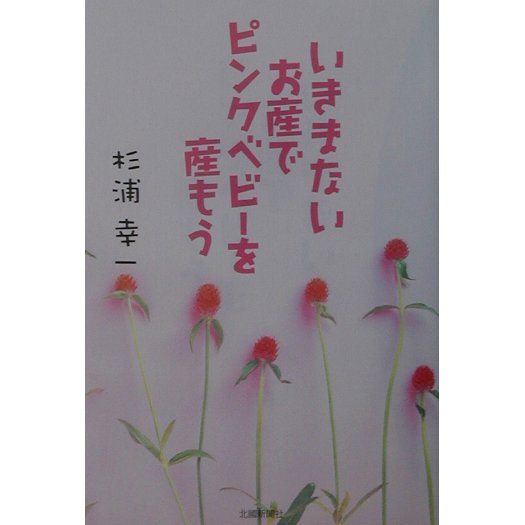 いきまない
お産で
ピンクベビーを
産もう
杉浦幸一
北國新聞社